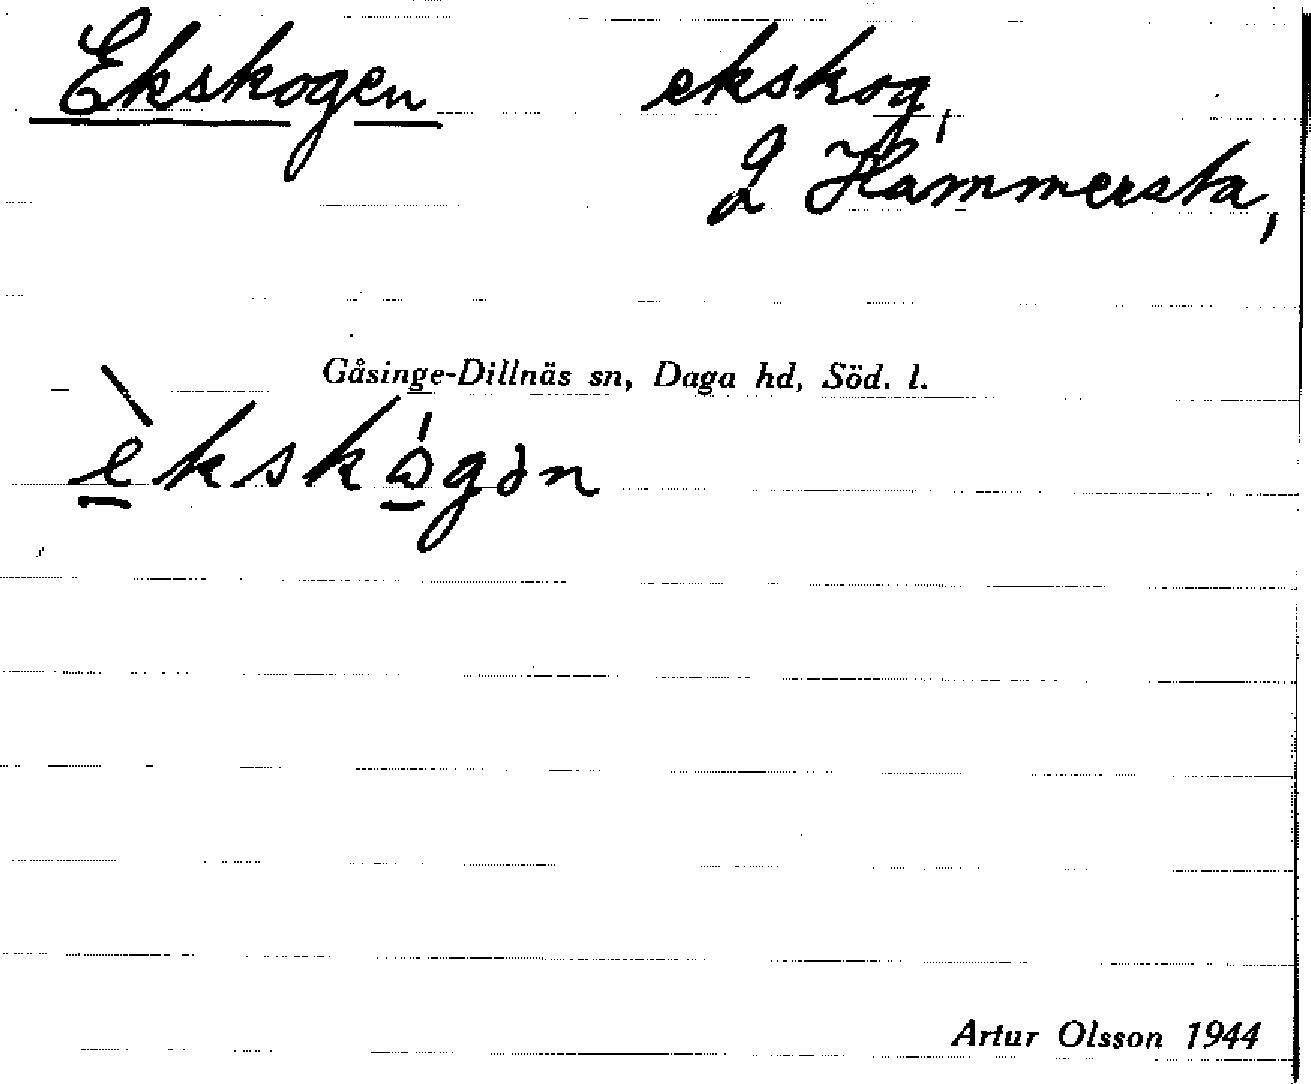 Ekskogen ekskog,
L Hammersta,
Gåsinge-Dillnäs sn, Daga hd, Söd. l.
Artur Olsson 1944